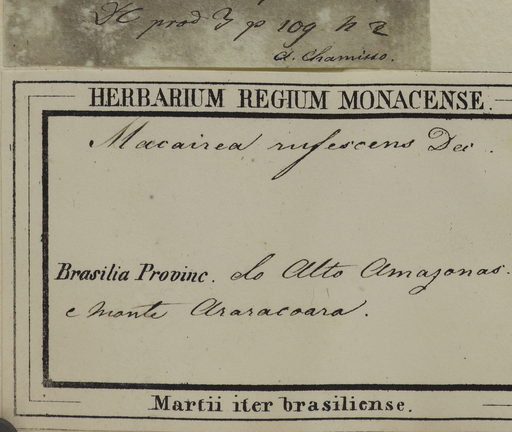 DC prod 3 p 109 n 2
d. Chamisso.
HERBARIUM REGIUM MONACENSE.
Macairea rufescens Dec.
Brasilia Provinc. do Alto Amazonas.
e monte Araracoara.
Martii iter brasiliense.